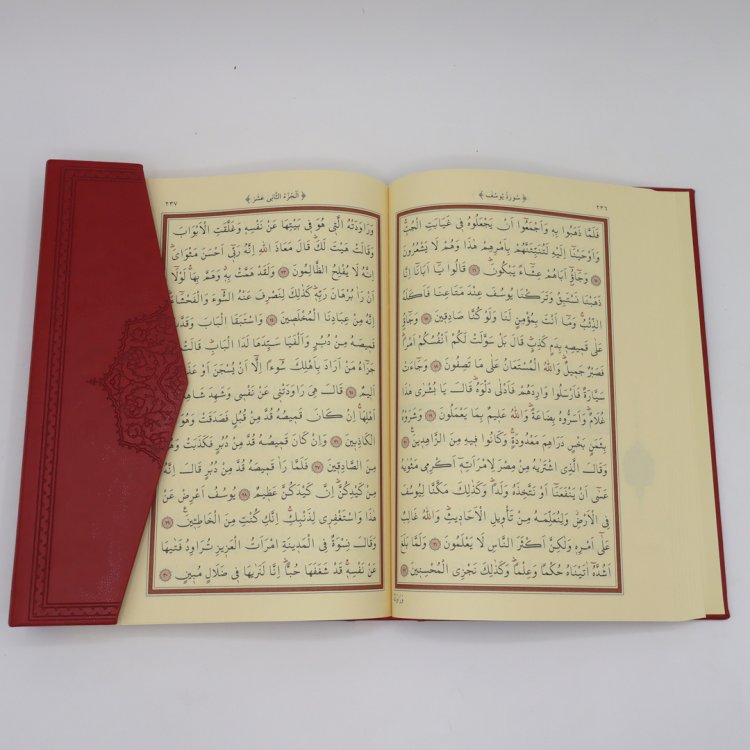 ٢٣٦
﴿ سُورَةُ يُوسُفَ ﴾
فَلَمَّا ذَهَبُوا بِهِ وَاَجْمَعُٓوا اَنْ يَجْعَلُوهُ فٖي غَيَابَتِ الْجُبِّۚ
وَاَوْحَيْنَٓا اِلَيْهِ لَتُنَبِّئَنَّهُمْ بِاَمْرِهِمْ هٰذَا وَهُمْ لَا يَشْعُرُونَ
﴿١٥﴾ وَجَٓاؤُٓ اَبَاهُمْ عِشَٓاءً يَبْكُونَۜ ﴿١٦﴾ قَالُوا يَٓا اَبَانَٓا اِنَّا
ذَهَبْنَا نَسْتَبِقُ وَتَرَكْنَا يُوسُفَ عِنْدَ مَتَاعِنَا فَاَكَلَهُ
الذِّئْبُۚ وَمَٓا اَنْتَ بِمُؤْمِنٍ لَنَا وَلَوْ كُنَّا صَادِقٖينَ ﴿١٧﴾ وَجَٓاؤُ
عَلٰى قَمٖيصِهٖ بِدَمٍ كَذِبٍۜ قَالَ بَلْ سَوَّلَتْ لَكُمْ اَنْفُسُكُمْ اَمْرًاۜ
فَصَبْرٌ جَمٖيلٌۜ وَاللّٰهُ الْمُسْتَعَانُ عَلٰى مَا تَصِفُونَ ﴿١٨﴾ وَجَٓاءَتْ
سَيَّارَةٌ فَاَرْسَلُوا وَارِدَهُمْ فَاَدْلٰى دَلْوَهُۜ قَالَ يَا بُشْرٰى هٰذَا
غُلَامٌۜ وَاَسَرُّوهُ بِضَاعَةًۜ وَاللّٰهُ عَلٖيمٌ بِمَا يَعْمَلُونَ ﴿١٩﴾ وَشَرَوْهُ
بِثَمَنٍ بَخْسٍ دَرَاهِمَ مَعْدُودَةٍۚ وَكَانُوا فٖيهِ مِنَ الزَّاهِدٖينَ۟ ﴿٢٠﴾
وَقَالَ الَّذِي اشْتَرٰيهُ مِنْ مِصْرَ لِامْرَاَتِهٖٓ اَكْرِمٖي مَثْوٰيهُ
عَسٰٓى اَنْ يَنْفَعَنَٓا اَوْ نَتَّخِذَهُ وَلَدًاۜ وَكَذٰلِكَ مَكَّنَّا لِيُوسُفَ
فِي الْاَرْضِۘ وَلِنُعَلِّمَهُ مِنْ تَأْوٖيلِ الْاَحَادٖيثِۜ وَاللّٰهُ غَالِبٌ
عَلٰٓى اَمْرِهٖ وَلٰكِنَّ اَكْثَرَ النَّاسِ لَا يَعْلَمُونَ ﴿٢١﴾ وَلَمَّا بَلَغَ
اَشُدَّهُٓ اٰتَيْنَاهُ حُكْمًا وَعِلْمًاۜ وَكَذٰلِكَ نَجْزِي الْمُحْسِنٖينَ ﴿٢٢﴾
﴿ اَلْجُزْءُ الثَّانٖي عَشَرَ ﴾
٢٣٧
وَرَاوَدَتْهُ الَّتٖي هُوَ فٖي بَيْتِهَا عَنْ نَفْسِهٖ وَغَلَّقَتِ الْاَبْوَابَ
وَقَالَتْ هَيْتَ لَكَۜ قَالَ مَعَاذَ اللّٰهِ اِنَّهُ رَبّٖٓي اَحْسَنَ مَثْوَايَۜ
اِنَّهُ لَا يُفْلِحُ الظَّالِمُونَ ﴿٢٣﴾ وَلَقَدْ هَمَّتْ بِهٖۚ وَهَمَّ بِهَاۚ لَوْلَٓا
اَنْ رَاٰ بُرْهَانَ رَبِّهٖۜ كَذٰلِكَ لِنَصْرِفَ عَنْهُ السُّٓوءَ وَالْفَحْشَٓاءَۜ
اِنَّهُ مِنْ عِبَادِنَا الْمُخْلَصٖينَ ﴿٢٤﴾ وَاسْتَبَقَا الْبَابَ وَقَدَّتْ
قَمٖيصَهُ مِنْ دُبُرٍ وَاَلْفَيَا سَيِّدَهَا لَدَا الْبَابِۜ قَالَتْ مَا
جَزَٓاءُ مَنْ اَرَادَ بِاَهْلِكَ سُٓوءًا اِلَّٓا اَنْ يُسْجَنَ اَوْ عَذَابٌ
اَلٖيمٌ ﴿٢٥﴾ قَالَ هِيَ رَاوَدَتْنٖي عَنْ نَفْسٖي وَشَهِدَ شَاهِدٌ مِنْ
اَهْلِهَاۚ اِنْ كَانَ قَمٖيصُهُ قُدَّ مِنْ قُبُلٍ فَصَدَقَتْ وَهُوَ مِنَ
الْكَاذِبٖينَ ﴿٢٦﴾ وَاِنْ كَانَ قَمٖيصُهُ قُدَّ مِنْ دُبُرٍ فَكَذَبَتْ وَهُوَ
مِنَ الصَّادِقٖينَ ﴿٢٧﴾ فَلَمَّا رَاٰ قَمٖيصَهُ قُدَّ مِنْ دُبُرٍ قَالَ اِنَّهُ
مِنْ كَيْدِكُنَّۜ اِنَّ كَيْدَكُنَّ عَظٖيمٌ ﴿٢٨﴾ يُوسُفُ اَعْرِضْ عَنْ
هٰذَا وَاسْتَغْفِرٖي لِذَنْبِكِۚ اِنَّكِ كُنْتِ مِنَ الْخَاطِـٖٔينَ۟ ﴿٢٩﴾
وَقَالَ نِسْوَةٌ فِي الْمَدٖينَةِ امْرَاَتُ الْعَزٖيزِ تُرَاوِدُ فَتٰيهَا
عَنْ نَفْسِهٖۚ قَدْ شَغَفَهَا حُبًّاۜ اِنَّا لَنَرٰيهَا فٖي ضَلَالٍ مُبٖينٍ ﴿٣٠﴾